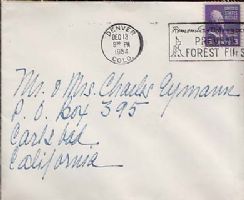 DENVER
DEC 13
9 PM
1954
COLO.
PREVENT
FOREST FIRES
Mr. & Mrs. Charles Aymann
P. O. Box 395
Carlsbad
California